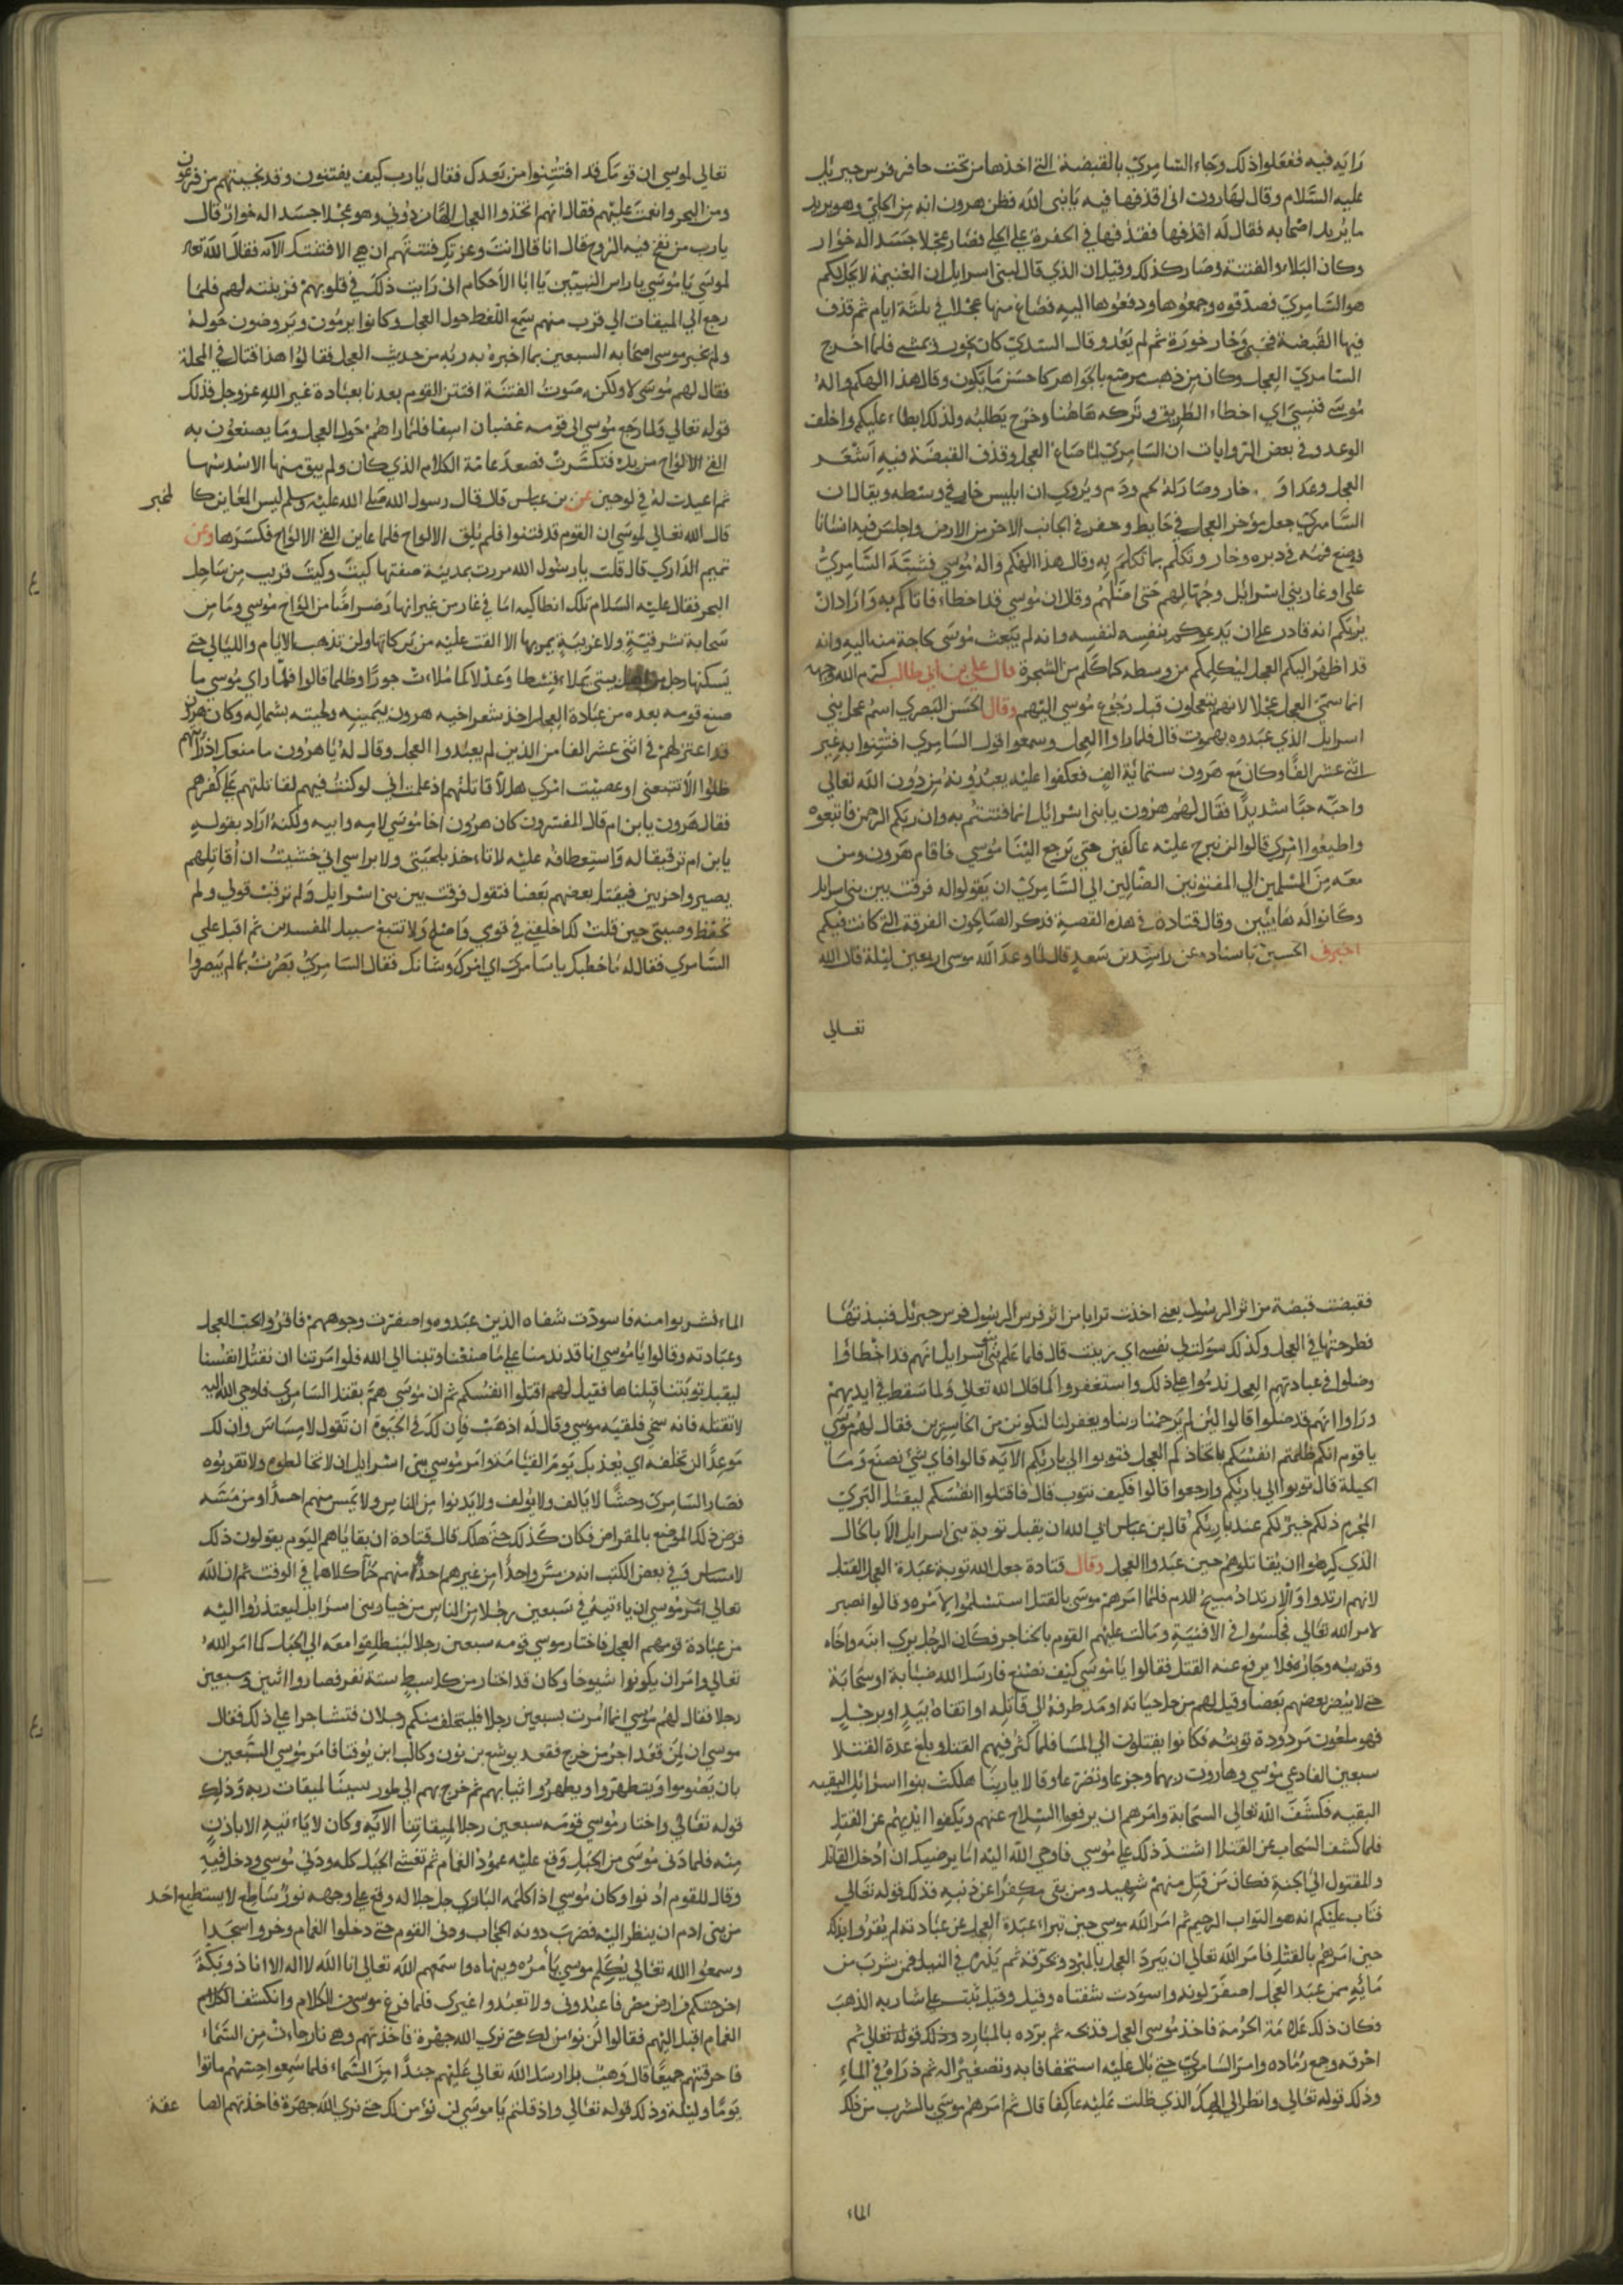 رايه فيه ففعلوا ذلك وجاء السامري بالقبضة التي اخذها من تحت حافر فرس جبريل
عليه السلام وقال لهارون اني اقذفها فيه يا نبي الله فظن هرون انه من الحلي وهو يريد
ما يريد اصحابه فقال له اقذفها فقذفها في الحفرة علي الحلي فصار عجلا جسدا له خوار
وكان البلاء والفتنة وصار كذلك وقيل ان الذي قال لبني اسرايل ان الغنيمة لا تحل لكم
هو السامري فصدقوه وجمعوها ودفعوها اليه فصاغ منها عجلا في ثلثة ايام ثم قذف
فيها القبضة فحيي وخار خورة ثم لم يعد وقال السدي كان يخور ويمشي فلما اخرج
السامري العجل وكان من ذهب مرصع بالجواهر كاحسن ما يكون وقال هذا الهكم واله
موسي فنسي اي اخطاء الطريق وتركه هاهنا وخرج يطلبه ولذلك ابطاء عليكم واخلف
الوعد وفي بعض الروايات ان السامري لما صاغ العجل وقذف القبضة فيه اشعر
العجل وعدا و خار وصار له لحم ودم ويروي ان ابليس خار في وسطه ويقال ان
السامري جعل مؤخر العجل في حايط وحفر في الجانب الاخر من الارض واجلس فيه انسانا
فوضع فمه في دبره وخار وتكلم بما تكلم به وقال هذا الهكم واله موسي فشبه السامري
علي اوغاد بني اسرايل وجهالهم حتي اضلهم وقال ان موسي قد اخطاء فاتاكم به واراد ان
يريكم انه قادر علي ان يدعوكم بنفسه لنفسه وانه لم يبعث موسي لحاجة منه اليه وانه
قد اظهر اليكم العجل ليكلمكم من وسطه كما كلم من الشجرة قال علي بن ابي طالب كرم الله وجهه
انما سمي العجل عجلا لانهم تعجلون قبل رجوع موسي اليهم وقال الحسن البصري اسم عجل بني
اسرايل الذي عبدوه بهموت قال فلما راوا العجل وسمعوا قول السامري افتتنوا به غير
اثني عشر الفا وكان مع هرون ستماية الف فعكفوا عليه يعبدونه من دون الله تعالي
واحبه حبا شديدا فقال لهم هرون يا بني اسرايل انما فتنتم به وان ربكم الرحمن فاتبعوه
واطيعوا امري قالوا لن نبرح عليه عاكفين حتي يرجع الينا موسي فاقام هرون ومن
معه من المسلمين الي المفتونين الضالين الي السامري ان يقولوا له فرقت بين بني اسرايل
وكانوا له هايبين وقال قتادة في هذه القصة فذكر الصالحون الفرقة التي كانت فيكم
اخبرني الحسين باسناده عن راشد بن سعد قال لما وعد الله موسي اربعين ليلة قال الله
تعالي
تعالي لموسي ان قومك قد افتتنوا من بعدك فقال يا رب كيف يفتنون وقد نجيتهم من فرعون
ومن البحر وانعمت عليهم فقال انهم اتخذوا العجل الها من دوني وهو عجلا جسدا له خوار قال
يا رب من نفخ فيه الروح قال انا قال انت وعزتك فتنتهم ان هي الا فتنتك الآيه فقال الله تعالي
لموسي يا موسي يا راس النبيين يا ابا الاحكام اني رايت ذلك في قلوبهم فزينته لهم فلما
رجع الي الميقات الي قرب منهم سمع اللغط حول العجل وكانوا يزمون ويروضون حوله
ولم يخبر موسي اصحابه السبعين بما اخبره به ربه من حديث العجل فقالوا هذا قتال في المحلة
فقال لهم موسي لا ولكن صوت الفتنة افتتن القوم بعدنا بعبادة غير الله عز وجل فذلك
قوله تعالي ولما رجع موسي الي قومه غضبان اسفا فلما راهم حول العجل وما يصنعون به
القي الالواح من يده فتكسرت فصعد عامة الكلام الذي كان ولم يبق منها الا سدسها
ثم اعيدت له في لوحين عن بن عباس قال قال رسول الله صلي الله عليه وسلم ليس المعاين كا لمخبر
قال الله تعالي لموسي ان القوم قد فتنوا فلم يلق الالواح فلما عاين القي الالواح فكسرها وعن
تميم الداري قال قلت يا رسول الله مررت بمدينة صفتها كيت وكيت قريب من ساحل
البحر فقال عليه السلام تلك انطاكيه اما في غار من غيرانها رضراضا من الواح موسي وما من
سحابة شرقية ولا غربية يمر بها الا القت عليه من بركاتها ولن تذهب الايام والليالي حتي
يسكنها رجل من اهل بيتي يملاء قسطا وعدلا كما ملات جورا وظلما قالوا فلما راي موسي ما
صنع قومه بعده من عبادة العجل اخذ شعر اخيه هرون بيمينه ولحيته بشماله وكان هرون
قد اعتزلهم في اثني عشر الفا من الذين لم يعبدوا العجل وقال له يا هرون ما منعك اذ رايتهم
ضلوا الا تتبعني افعصيت امري هلا قاتلتهم اذ علمت اني لو كنت فيهم لقاتلتهم علي كفرهم
فقال هرون يا بن ام قال المفسرون كان هرون اخا موسي لامه وابيه ولكنه اراد بقوله
يا بن ام ترقيقا له واستعطافه عليه لا تاخذ بلحيتي ولا براسي اني خشيت ان اقاتلهم
يصيروا حزبين فيقتل بعضهم بعضا فتقول فرقت بين بني اسرايل ولم ترقب قولي ولم
تحفظ وصيتي حين قلت لك اخلفني في قومي واصلح ولا تتبع سبيل المفسدين ثم اقبل علي
السامري فقال له ما خطبك يا سامري اي امرك وشانك فقال السامري بصرت بما لم يبصروا
فقبضت قبضة من اثر الرسول يعني اخذت ترابا من اثر فرس الرسول فرس جبريل فنبذتها
فطرحتها في العجل وكذلك سولت لي نفسي اي زينت قال فلما علم بني اسرايل انهم قد اخطاوا
وضلوا في عبادتهم العجل ندموا علي ذلك واستغفروا كما قال الله تعالي ولما سقط في ايديهم
وراوا انهم قد ضلوا قالوا لئن لم يرحمنا ربنا ويغفر لنا لنكونن من الخاسرين فقال لهم موسي
يا قوم انكم ظلمتم انفسكم باتخاذكم العجل فتوبوا الي باريكم الآيه قالوا فاي شئ نصنع وما
الحيلة قال توبوا الي باريكم وارجعوا قالوا فكيف نتوب قال فاقتلوا انفسكم ليقتل البري
المجرم ذلكم خير لكم عند باريكم قال بن عباس ابي الله ان يقبل توبة بني اسرايل الا بالحال
الذي كرهوا ان يقاتلوهم حين عبدوا العجل وقال قتادة جعل الله توبة عبدة العجل القتل
لانهم ارتدوا والارتداد مبيح للدم فلما امرهم موسي بالقتل استسلموا لامره وقالوا نصبر
لامر الله تعالي فجلسوا في الافنية ومالت عليهم القوم بالخناجر فكان الرجل يري ابنه واخاه
وقريبه وجاره فلا يرفع عنه القتل فقالوا يا موسي كيف نصنع فارسل الله ضبابة او سحابة
حتي لا يبصر بعضهم بعضا وقيل لهم من حل حياته او مد طرفه الي قاتله او اتقاه بيد او برجل
فهو ملعون مردودة توبته فكانوا يقتلون الي المسا فلما كثر فيهم القتل وبلغ عدة القتلا
سبعين الفا دعي موسي وهارون ربهما وجزعا وتضرعا وقالا يا ربنا هلكت بنوا اسرائيل البقيه
البقيه فكشف الله تعالي السحابة وامرهم ان يرفعوا السلاح عنهم ويكفوا ايديهم عن القتل
فلما كشف السحاب عن القتلا اشتد ذلك علي موسي فاوحي الله اليه اما يرضيك ان ادخل القاتل
والمقتول الي الجنة فكان من قتل منهم شهيد ومن بقي مكفرا عن ذنبه فذلك قوله تعالي
فتاب عليكم انه هو التواب الرحيم ثم امر الله موسي حين تبراء عبدة العجل عن عبادته لم يقروا بذلك
حين امرهم بالقتل فامر الله تعالي ان يبرد العجل بالمبرد ويحرقه ثم يذره في النيل فمن شرب من
مايه ممن عبد العجل اصفر لونه واسودت شفتاه وقيل وقيل ثبت علي شاربه الذهب
وكان ذلك علامة الحرمة فاخذ موسي العجل فذبحه ثم برده بالمبارد وذلك قوله تعالي ثم
احرقه وجمع رماده وامر السامري حتي بال عليه استخفافا به وتصغيرا له ثم ذراه في الماء
وذلك قوله تعالي وانظر الي الهك الذي ظلت عليه عاكفا قال ثم امرهم موسي بالشرب من ذلك
الماء
الماء فشربوا منه فاسودت شفاه الذين عبدوه واصفرت وجوههم فاقروا بحب العجل
وعبادته وقالوا يا موسي انا قد ندمنا علي ما صنعنا وتبنا الي الله فلو امرتنا ان نقتل انفسنا
ليقبل توبتنا قبلناها فقيل لهم اقتلوا انفسكم ثم ان موسي هم بقتل السامري فاوحي الله اليه
لا تقتله فانه سخي فلقيه موسي وقال له اذهب فان لك في الحيوة ان تقول لا مساس وان لك
موعدا لن تخلفه اي يعذبك يوم القيامة وامر موسي بني اسرايل ان لا تخالطوه ولا تقربوه
فصار السامري وحشا لا يالف ولا يولف ولا يدنوا من الناس ولا يمس منهم احدا ومن مسه
قرض ذلك الموضع بالمقراض فكان كذلك حتي هلك قال قتادة ان بقاياهم اليوم يقولون ذلك
لا مساس وفي بعض الكتب انه من مس واحدا من غيرهم احدا منهم حم كلاهما في الوقت ثم ان الله
تعالي امر موسي ان ياءتيه في سبعين رجلا من الناس من خيار بني اسرايل ليعتذروا اليه
من عبادة قومهم العجل فاختار موسي قومه سبعين رجلا لينطلقوا معه الي الجبل كما امر الله
تعالي وامر ان يكونوا شيوخا وكان قد اختار من كل سبط ستة نفر فصاروا اثنين وسبعين
رجلا فقال لهم موسي انما امرت بسبعين رجلا فليتخلف منكم رجلان فتشاجرا علي ذلك فقال
موسي ان لمن قعد اجر من خرج فقعد يوشع بن نون وكالب ابن يوقنا فامر موسي السبعين
بان يصوموا ويتطهروا ويطهروا ثيابهم ثم خرج بهم الي طور سينا لميقات ربه وذلك
قوله تعالي واختار موسي قومه سبعين رجلا لميقاتنا الآيه وكان لا ياءتيه الا باذن
منه فلما دني موسي من الجبل وقع عليه عمود الغمام ثم تغشي الجبل كله ودني موسي ودخل فيه
وقال للقوم ادنوا وكان موسي اذا كلمه الباري جل جلاله وقع علي وجهه نور ساطع لا يستطيع احد
من بني ادم ان ينظر اليه فضرب دونه الحجاب ودني القوم حتي دخلوا الغمام وخروا سجدا
وسمعوا الله تعالي يكلم موسي يأمره وينهاه واسمعهم الله تعالي انا الله لا اله الا انا ذو بكة
اخرجتكم من ارض مصر فاعبدوني ولا تعبدوا غيري فلما فرغ موسي من الكلام وانكشف الكلام
الغمام اقبل اليهم فقالوا لن نؤمن لك حتي نري الله جهرة فاخذتهم وهي نار جاءت من السماء
فاحرقتهم جميعا قال وهب بل ارسل الله تعالي عليهم جندا من السماء فلما سمعوا حسهم ماتوا
يوما وليلة وذلك قوله تعالي واذ قلتم يا موسي لن نؤمن لك حتي نري الله جهرة فاخذتهم الصا عقة